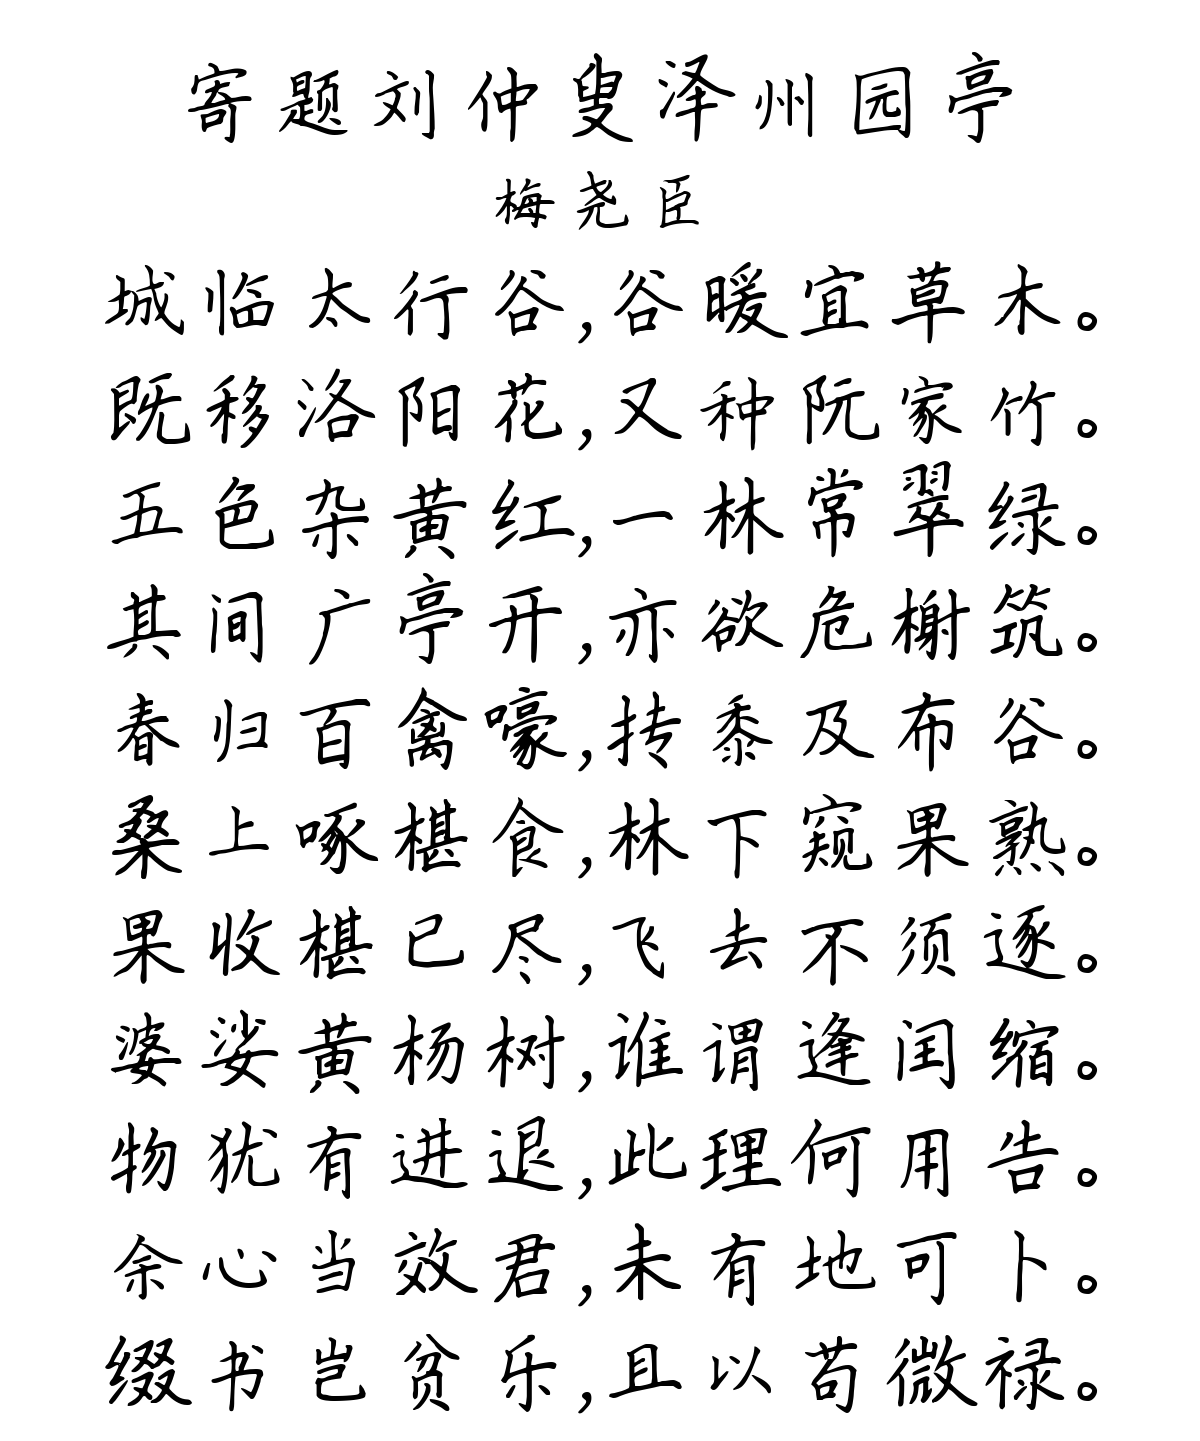 寄题刘仲叟泽州园亭
梅尧臣
城临太行谷,谷暖宜草木。
既移洛阳花,又种阮家竹。
五色杂黄红,一林常翠绿。
其间广亭开,亦欲危榭筑。
春归百禽嚎,抟黍及布谷。
桑上啄椹食,林下窥果熟。
果收椹已尽,飞去不须逐。
婆娑黄杨树,谁谓逢闰缩。
物犹有进退,此理何用告。
余心当效君,未有地可卜。
缀书岂贫乐,且以苟微禄。